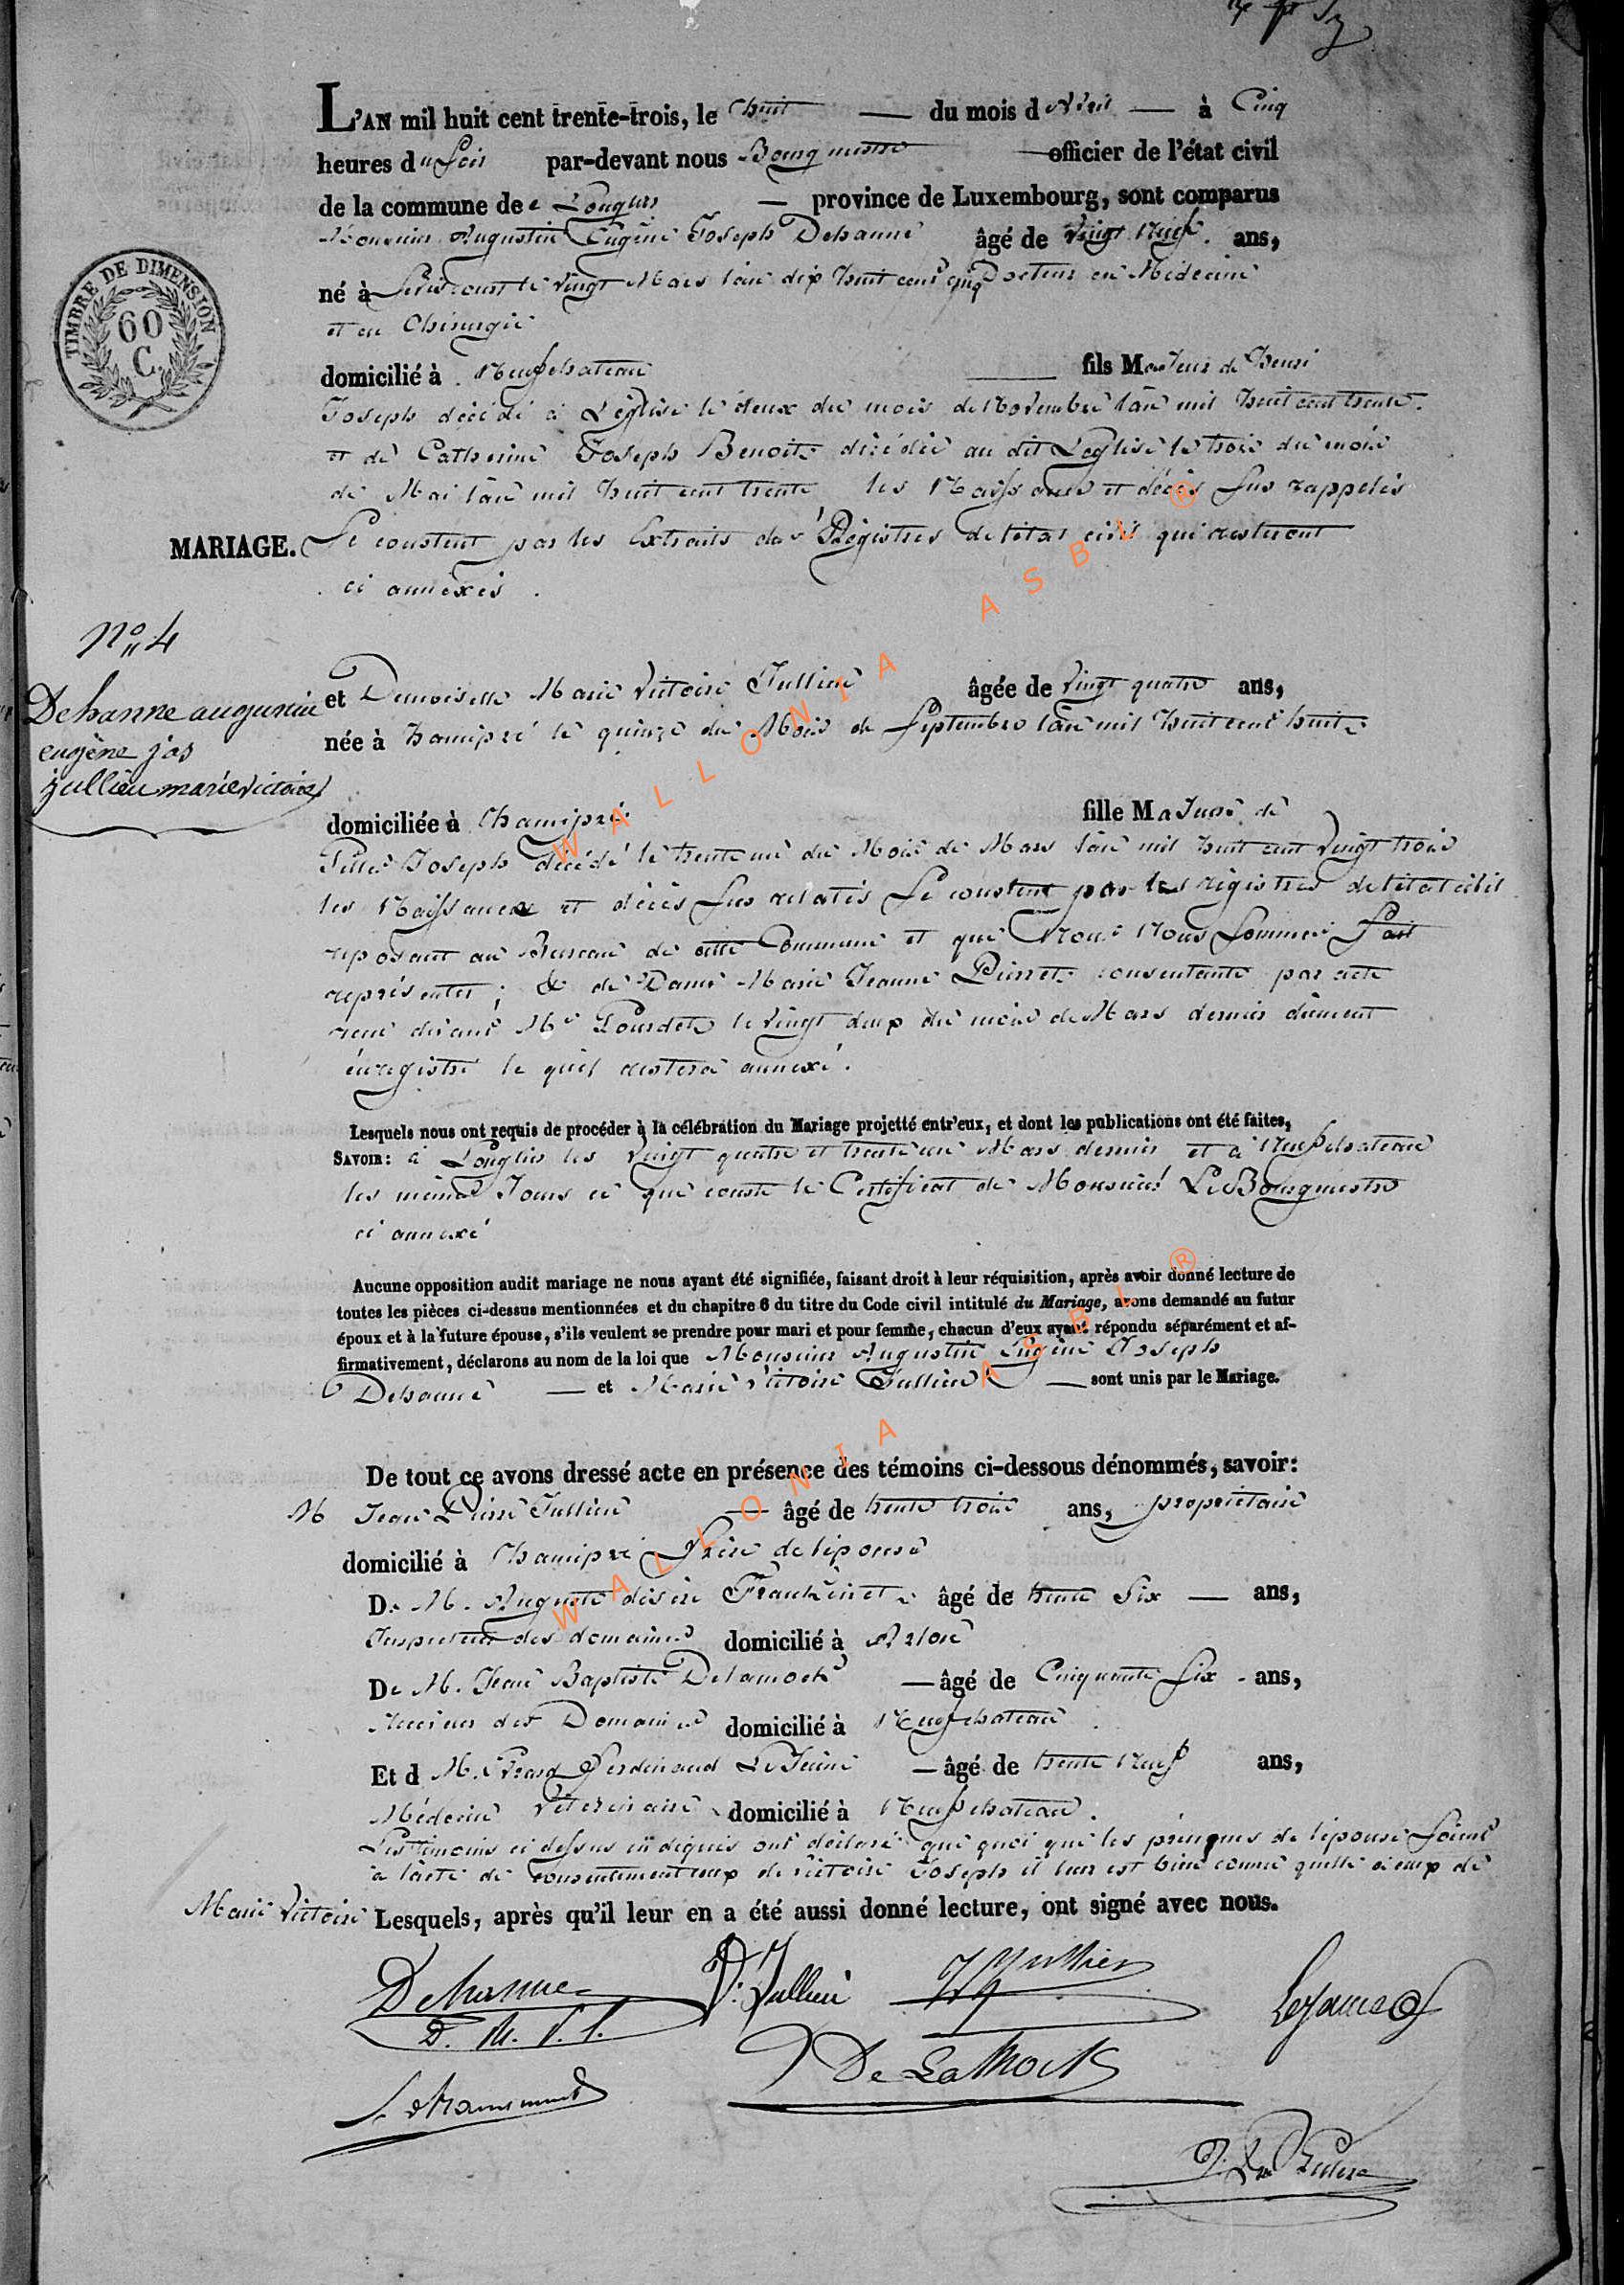 L'AN mil huit cent trente-trois, le huit du mois d'Avril à Cinq
heures du Soir par-devant nous Bourgmestre officier de l'état civil
de la commune de Longlier province de Luxembourg, sont comparus
Monsieur Augustin Eugène Joseph Dehanne âgé de vingt neuf ans,
né à le vingt Mars l'an dix huit cent cinq Docteur en Médecine
et en Chirurgie
TIMBRE DE DIMENSION
60
C.
domicilié à Neufchateau fils Majeur de Henri
Joseph décédé à Léglise le deux du mois de Novembre l'an mil huit cent trente
et de Catherine Joseph Benoit décédée au dit Léglise le trois du mois
de Mai l'an mil huit cent trente les Naissances et décès sus rappelés
MARIAGE. Se constent par les Extraits des Régistres de l'état civil qui resteront
ci annexés.
N° 4
Dehanne augustin
eugène jos
jullien marie victoire
et Demoiselle Marie Victoire Jullien âgée de vingt quatre ans,
née à hamipré le quinze du Mois de Septembre l'an mil huit cent huit
domiciliée à hamipré fille Majeure de
Joseph décédé le trente un du Mois de Mars l'an mil huit cent vingt trois
les Naissances et décès sus relatés Se constent par les régistres de l'état civil
reposant au Bureau de cette Commune et que Nous Nous Sommes fait
représenter ; & de Dame Marie Jeanne Pierret consentante par acte
reçu devant Me le vingt deux du mois de Mars dernier dûment
énregistré le quel restera annexé.
Lesquels nous ont requis de procéder à la célébration du Mariage projetté entr'eux, et dont les publications ont été faites,
SAVOIR: à Longlier les vingt quatre et trente un Mars dernier et à Neufchateau
les mêmes Jours ce que conste le Certificat de Monsieur Le Bourgmestre
ci annexé
Aucune opposition audit mariage ne nous ayant été signifiée, faisant droit à leur réquisition, après avoir donné lecture de
toutes les pièces ci-dessus mentionnées et du chapitre 6 du titre du Code civil intitulé du Mariage, avons demandé au futur
époux et à la future épouse, s'ils veulent se prendre pour mari et pour femme, chacun d'eux ayant répondu séparément et af-
firmativement, déclarons au nom de la loi que Monsieur Augustin Eugène Joseph
Dehanne et Marie Victoire Jullien sont unis par le Mariage.
De tout ce avons dressé acte en présence des témoins ci-dessous dénommés, savoir:
M Jean Pierre Jullien âgé de trente trois ans, propriétaire
domicilié à hamipré frère de l'épouse
De M. Auguste désiré âgé de trente Six ans,
Inspecteur des domaines domicilié à Arlon
De M. Jean Baptiste Delamock âgé de Cinquante Six ans,
Receveur des Domaines domicilié à Neufchateau
Et d M. Ferdinand LeJeune âgé de trente Neuf ans,
Médecin Vétérinaire domicilié à Neufchateau.
Les témoins ci dessus indiqués ont déclaré que quoi que les prénoms de l'épouse soient
à l'acte de consentement ceux de victoire Joseph il leur est bien connu qu'elle a ceux de
Marie Victoire Lesquels, après qu'il leur en a été aussi donné lecture, ont signé avec nous.
Dehanne V. Jullien Jullien Lejeune
D. M.
De La Mock
WALLONIA ASBL ®
WALLONIA ASBL ®